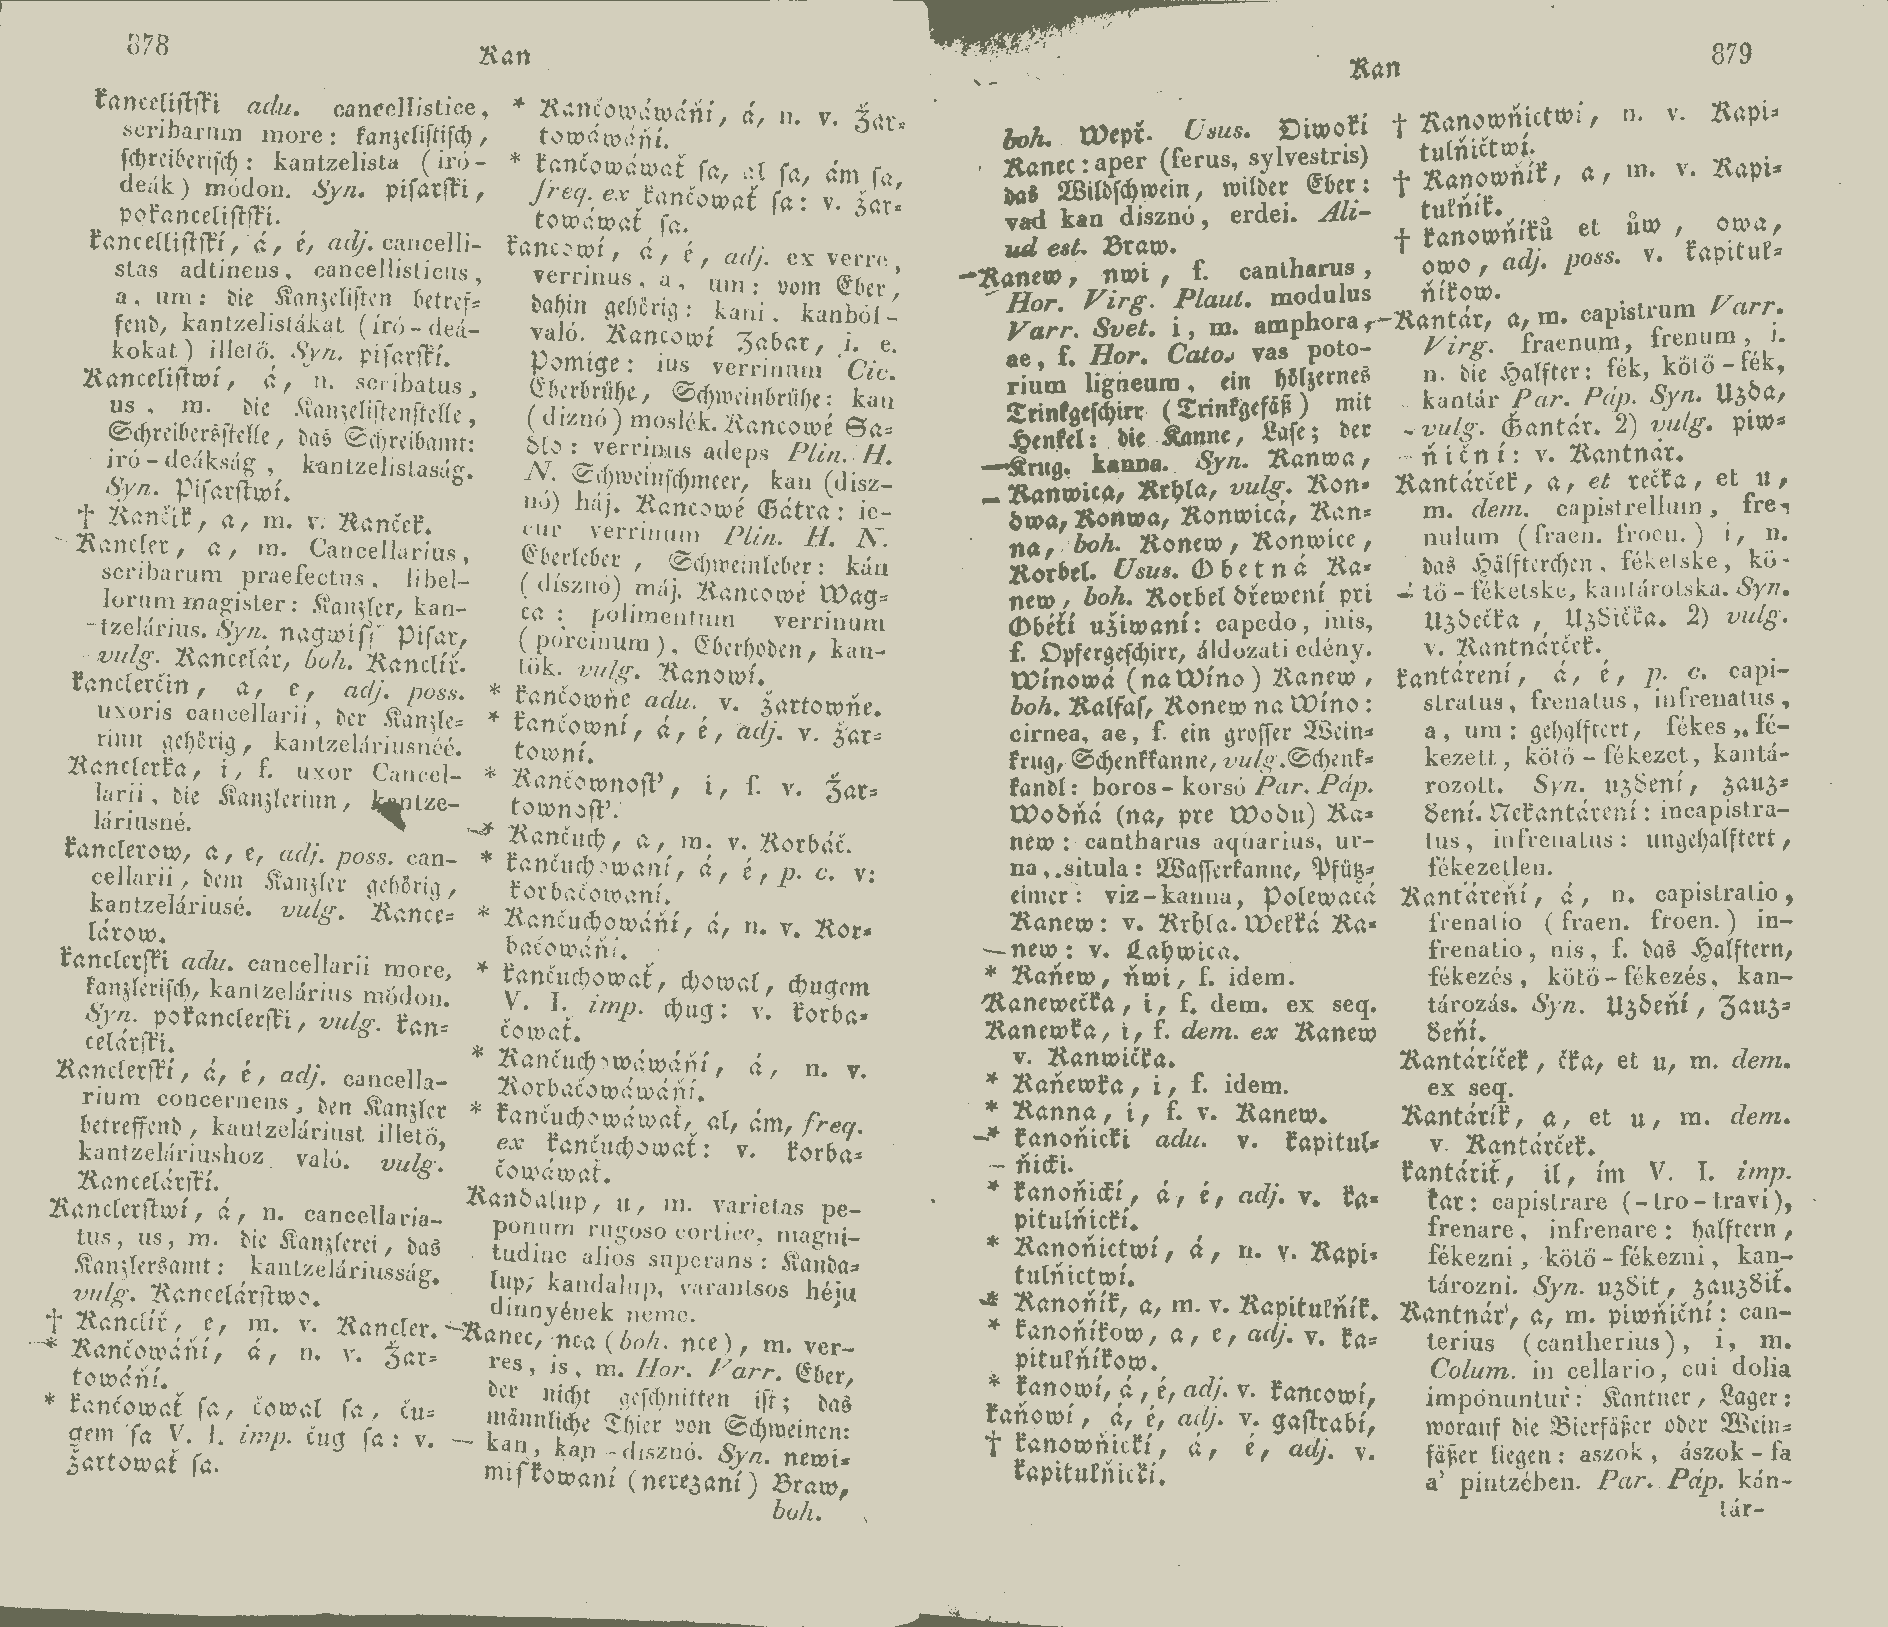 878
Kan
kanceliſtſki adu. cancellistice,
scribarum more: kanzeliſtiſch,
ſchreiberiſch: kantzelista (iró-
deák) módon. Syn. piſarſki,
pokanceliſtſki.
kancelliſtſkí, á, é, adj. cancelli-
stas adtinens, cancellisticus,
a, um: die Kanzeliſten betref=
fend, kantzelistákat (író-deá-
kokat) illető. Syn. piſarſkí.
Kanceliſtwí, á, n. scribatus,
us, m. die Kanzeliſtenſtelle,
Schreibersſtelle, das Schreibamt:
iró-deákság, kantzelistaság.
Syn. Piſarſtwí.
† Kančík, a, m. v. Kanček.
Kancler, a, m. Cancellarius,
scribarum praefectus, libel-
lorum magister: Kanzler, kan-
tzelárius. Syn. nagwiſſ Piſar,
vulg. Kancelár, boh. Kanclíř.
kanclerčin, a, e, adj. poss.
uxoris cancellarii, der Kanzle=
rinn gehörig, kantzeláriusnéé.
Kanclerka, i, f. uxor Cancel-
larii, die Kanzlerinn, kantze-
láriusné.
kanclerow, a, e, adj. poss. can-
cellarii, dem Kanzler gehörig,
kantzeláriusé. vulg. Kance=
lárow.
kanclerſki adu. cancellarii more,
kanzleriſch, kantzelárius módon.
Syn. pokanclerſki, vulg. kan=
celárſki.
Kanclerſkí, á, é, adj. cancella-
rium concernens, den Kanzler
betreffend, kantzeláriust illető,
kantzeláriushoz való. vulg.
Kancelárſkí.
Kanclerſtwí, á, n. cancellaria-
tus, us, m. die Kanzlerei, das
Kanzlersamt: kantzeláriusság.
vulg. Kancelárſtwo.
† Kanclíř, e, m. v. Kancler.
* Kančowáňí, á, n. v. Žar=
towáňí.
* kančowať ſa, čowal ſa, ču=
gem ſa V. I. imp. čug ſa: v.
žartowať ſa.
* Kančowáwáňí, á, n. v. Žar=
towáwáňí.
* kančowáwať ſa, al ſa, ám ſa,
freq. ex kančowať ſa: v. žar=
towáwať ſa.
kancowí, á, é, adj. ex verre,
verrinus, a, um: vom Eber,
dahin gehörig: kani, kanból-
való. Kancowí Zabar, i. e.
Pomige: ius verrinum Cic.
Eberbrühe, Schweinbrühe: kan
(diznó) moslék. Kancowé Sa=
dlo: verrinus adeps Plin. H.
N. Schweinſchmeer, kan (disz-
nó) háj. Kancowé Gátra: ie-
cur verrinum Plin. H. N.
Eberleber, Schweinleber: kán
(dísznó) máj. Kancowé Wag=
ca: polimentum verrinum
(porcinum), Eberhoden, kan-
tök. vulg. Kanowí.
* kančowňe adu. v. žartowňe.
* kančowní, á, é, adj. v. žar=
towní.
* Kančownoſt', i, f. v. Žar=
townoſt'.
* Kančuch, a, m. v. Korbáč.
* kančuchowaní, á, é, p. c. v:
korbačowaní.
* Kančuchowáňí, á, n. v. Kor=
bačowáňí.
* kančuchowať, chowal, chugem
V. I. imp. chug: v. korba=
čowať.
* Kančuchowáwáňí, á, n. v.
Korbačowáwáňí.
* kančuchowáwať, al, ám, freq.
ex kančuchowať: v. korba=
čowáwať.
Kandalup, u, m. varietas pe-
ponum rugoso cortice, magni-
tudine alios superans: Kanda=
lup, kandalup, varantsos héju
dinnyének neme.
Kanec, nca (boh. nce), m. ver-
res, is, m. Hor. Varr. Eber,
der nicht geſchnitten iſt; das
männliche Thier von Schweinen:
kan, kan-disznó. Syn. newi=
miſkowaní (nerezaní) Braw,
boh.
Kan
879
boh. Wepř. Usus. Diwokí
Kanec: aper (ferus, sylvestris)
das Wildſchwein, wilder Eber:
vad kan disznó, erdei. Ali-
ud est. Braw.
Kanew, nwi, f. cantharus,
Hor. Virg. Plaut. modulus
Varr. Svet. i, m. amphora,
ae, f. Hor. Cato. vas poto-
rium ligneum, ein hölzernes
Trinkgeſchirr (Trinkgefäß) mit
Henkel: die Kanne, Laſe; der
Krug. kanna. Syn. Kanwa,
Kanwica, Krhla, vulg. Kon=
dwa, Konwa, Konwicá, Kan=
na, boh. Konew, Konwice,
Korbel. Usus. Obetná Ka=
new, boh. Korbel dřewení pri
Obéťi užiwaní: capedo, inis,
f. Opfergeſchirr, áldozati edény.
Wínowá (na Wíno) Kanew,
boh. Kalfaſ, Konew na Wíno:
cirnea, ae, f. ein groſſer Wein=
krug, Schenkkanne, vulg. Schenk=
kandl: boros-korsó Par. Páp.
Wodňá (na, pre Wodu) Ka=
new: cantharus aquarius, ur-
na, situla: Waſſerkanne, Pfütz=
eimer: viz-kanna, Polewacá
Kanew: v. Krhla. Welká Ka=
new: v. Lahwica.
* Kaňew, ňwi, f. idem.
Kanewečka, i, f. dem. ex seq.
Kanewka, i, f. dem. ex Kanew
v. Kanwička.
* Kaňewka, i, f. idem.
* Kanna, i, f. v. Kanew.
* kanoňicki adu. v. kapitul=
ňicki.
* kanoňickí, á, é, adj. v. ka=
pitulňickí.
* Kanoňictwí, á, n. v. Kapi=
tulňictwí.
* Kanoňík, a, m. v. Kapitulňík.
* kanoňíkow, a, e, adj. v. ka=
pitulňíkow.
* kanowí, á, é, adj. v. kancowí,
kaňowí, á, é, adj. v. gaſtrabí,
† kanowňickí, á, é, adj. v.
kapitulňickí.
† Kanowňictwí, n. v. Kapi=
tulňičtwí.
† Kanowňík, a, m. v. Kapi=
tulňík.
† kanowňíků et ůw, owa,
owo, adj. poss. v. kapitul=
ňíkow.
Kantár, a, m. capistrum Varr.
Virg. fraenum, frenum, i.
n. die Halfter: fék, kötő-fék,
kantár Par. Páp. Syn. Uzda,
vulg. Gantár. 2) vulg. piw=
ňiční: v. Kantnár.
Kantárček, a, et rečka, et u,
m. dem. capistrellum, fre-
nulum (fraen. froen.) i, n.
das Hälfterchen, féketske, kö-
tő-féketske, kantárotska. Syn.
Uzdečka, Uzdička. 2) vulg.
v. Kantnárček.
kantárení, á, é, p. c. capi-
stratus, frenatus, infrenatus,
a, um: gehalftert, fékes, fé-
kezett, kötő-fékezet, kantá-
rozott. Syn. uzdení, zauz=
dení. Nekantárení: incapistra-
tus, infrenatus: ungehalftert,
fékezetlen.
Kantáreňí, á, n. capistratio,
frenatio (fraen. froen.) in-
frenatio, nis, f. das Halftern,
fékezés, kötő-fékezés, kan-
tározás. Syn. Uzdeňí, Zauz=
deňí.
Kantáríček, čka, et u, m. dem.
ex seq.
Kantárík, a, et u, m. dem.
v. Kantárček.
kantáriť, il, ím V. I. imp.
kar: capistrare (-tro-travi),
frenare, infrenare: halftern,
fékezni, kötő-fékezni, kan-
tározni. Syn. uzdit, zauzdiť.
Kantnár, a, m. piwňiční: can-
terius (cantherius), i, m.
Colum. in cellario, cui dolia
impónuntur: Kantner, Lager:
worauf die Bierfäßer oder Wein=
fäßer liegen: aszok, ászok-fa
a' pintzében. Par. Páp. kán-
tár-